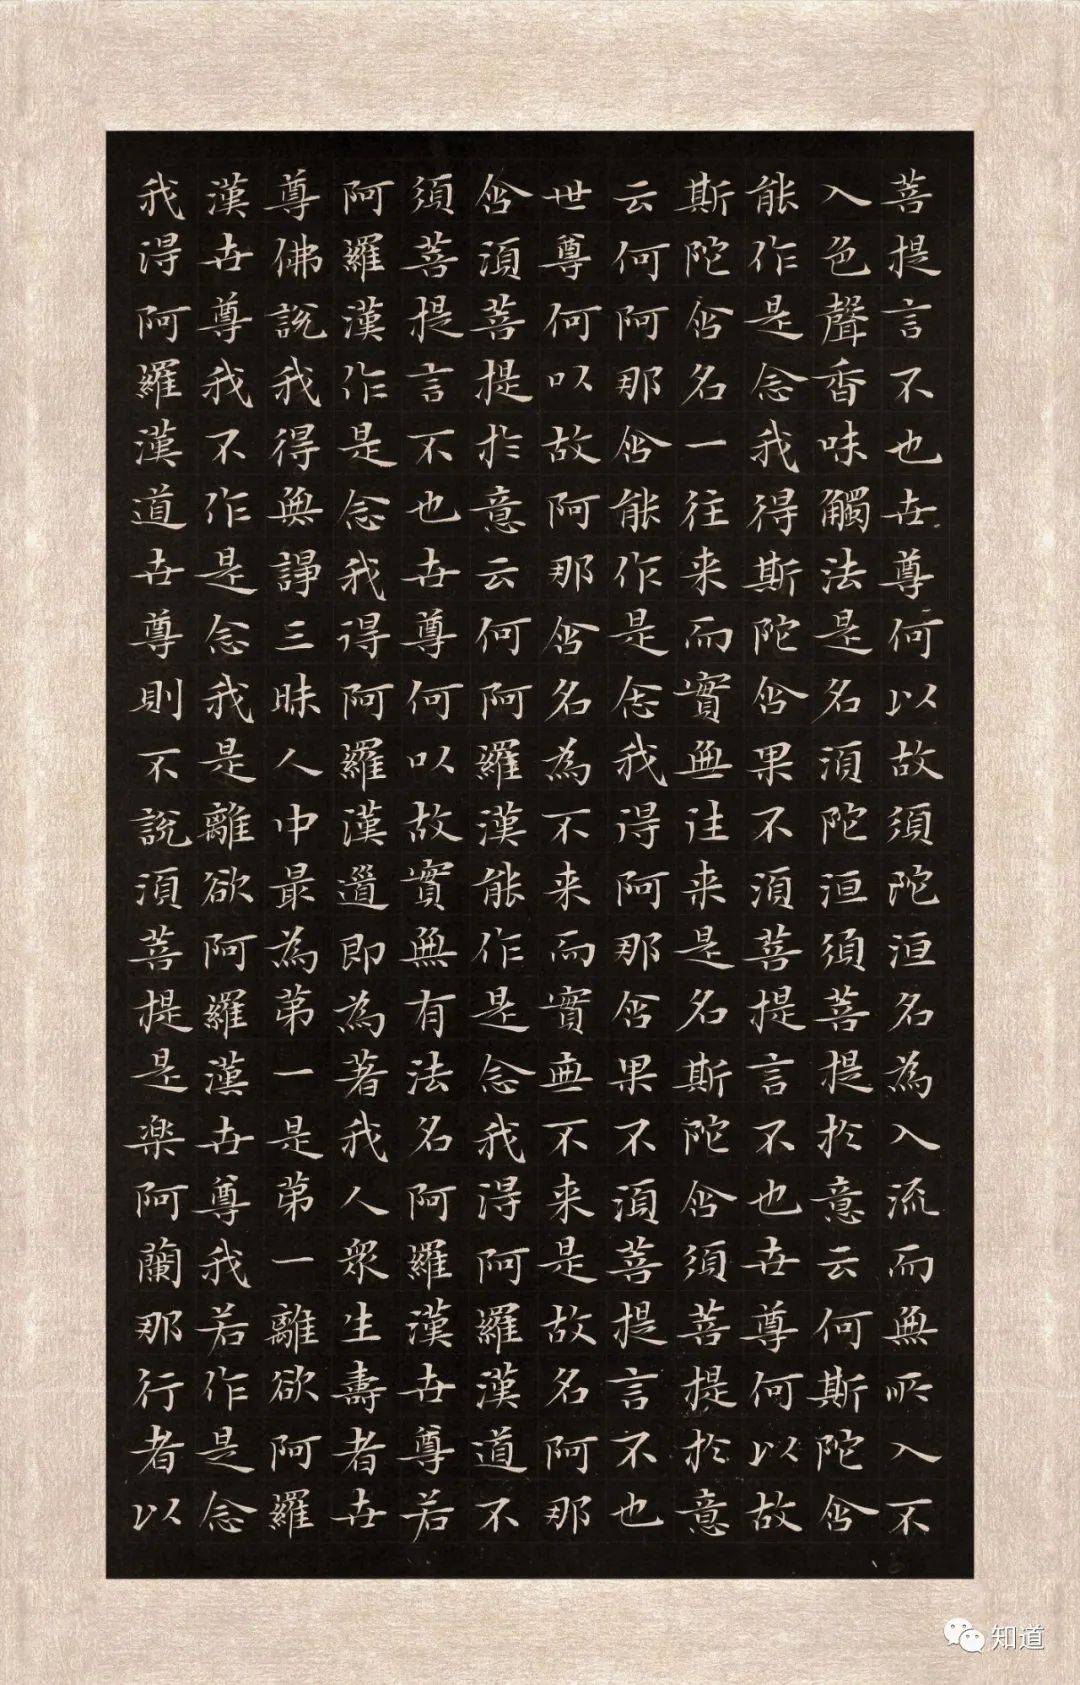 菩提言不也世尊何以故須陀洹名為入流而無所入不
入色聲香味觸法是名須陀洹須菩提於意云何斯陀含
能作是念我得斯陀含果不須菩提言不也世尊何以故
斯陀含名一往来而實無往来是名斯陀含須菩提於意
云何阿那含能作是念我得阿那含果不須菩提言不也
世尊何以故阿那含名為不来而實無不来是故名阿那
含須菩提於意云何阿羅漢能作是念我得阿羅漢道不
須菩提言不也世尊何以故實無有法名阿羅漢世尊若
阿羅漢作是念我得阿羅漢道即為著我人眾生壽者世
尊佛說我得無諍三昧人中最為第一是第一離欲阿羅
漢世尊我不作是念我是離欲阿羅漢世尊我若作是念
我得阿羅漢道世尊則不說須菩提是楽阿蘭那行者以
知道